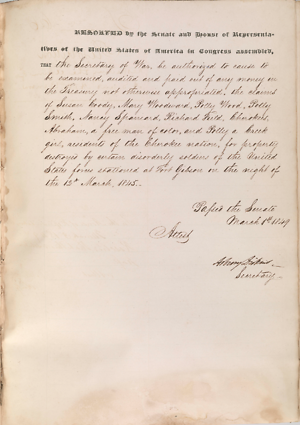 RESOLVED by the Senate and House of Representa-
tives of the United States of America in Congress assembled,
THAT the Secretary of War, be authorized to cause to
be examined, audited and paid out of any money in
the Treasury not otherwise appropriated, the claims
of Susan Coody, Mary Woodward, Polly Wood, Polly
Smith, Nancy Spaniard, Richard Field, Cherokees,
Abraham, a free man of color, and Polly a Creek
residents of the Cherokee nation, for property
destroyed by certain disorderly soldiers of the United
States force stationed at Fort Gibson on the night of
the 15th March, 1845.
Passed the Senate
March 1st 1849
Attest
Asbury Dickins
Secretary